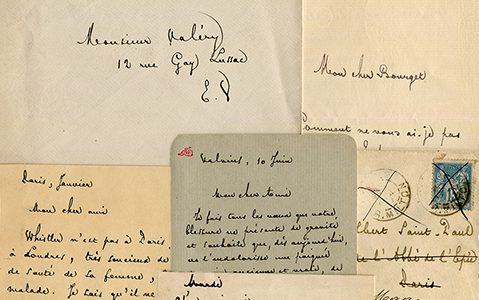 Monsieur Valéry
12 rue Gay Lussac
E. V
Mon cher Bourget
Comment ne vous ai-je pas
Paris, Janvier
Mon cher ami
Whistler n'est pas à Paris
à Londres, très soucieux de
de santé de la femme,
malade. Je sais qu'il ne
Valvins, 10 Juin
Mon cher ami
Je fais tous les vœux que votre
blessure ne présente de gravité
et souhaite que, dès aujourd'hui,
ne
Albert Saint-Paul
rue de l'Abbé de l'Épée
Paris